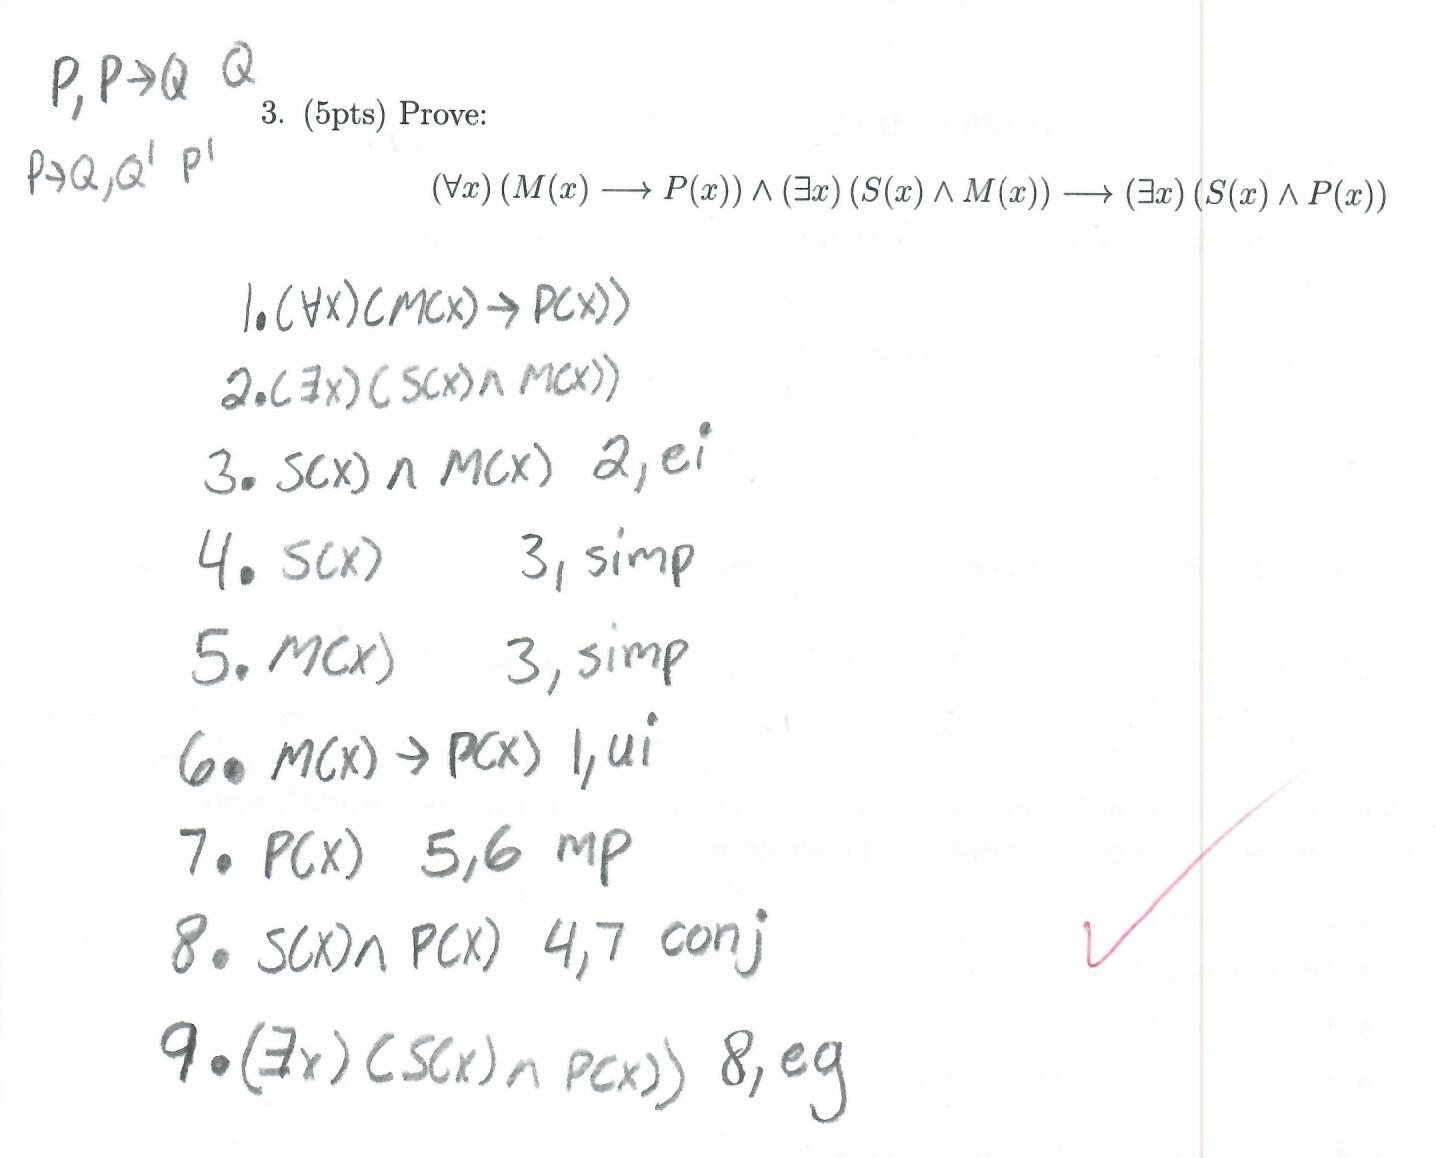 P, P→Q Q
3. (5pts) Prove:
P→Q, Q' P'
(∀x) (M(x) ⟶ P(x)) ∧ (∃x) (S(x) ∧ M(x)) ⟶ (∃x) (S(x) ∧ P(x))
1. (∀x)(M(x) → P(x))
2. (∃x)(S(x) ∧ M(x))
3. S(x) ∧ M(x) 2, ei
4. S(x) 3, simp
5. M(x) 3, simp
6. M(x) → P(x) 1, ui
7. P(x) 5,6 mp
8. S(x) ∧ P(x) 4,7 conj
9. (∃x)(S(x) ∧ P(x)) 8, eg